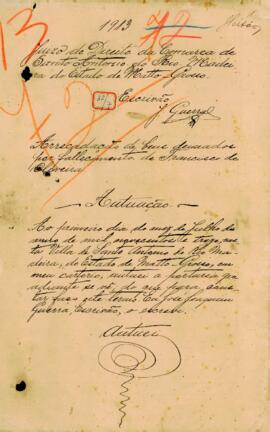 1913
Juizo de Direito da Comarca de
Santo Antonio do Rio Madei
ra do Estado de Matto-Grosso.
Escrivão
J Guerra
Arrecadação de bens deixados
por fallecimento de Francisco de
Oliveira
Autuação
Ao primeiro dia do mez de Julho do
anno de mil novecentos e treze, nes
ta Villa de Santo Antonio do Rio Ma
deira, do Estado de Matto Grosso, em
meu cartorio, autuei a portaria que
adiante se vê; do que para cons
tar faço este termo. Eu José Joaquim
Guerra, Escrivão, o escrevi.
Autuei